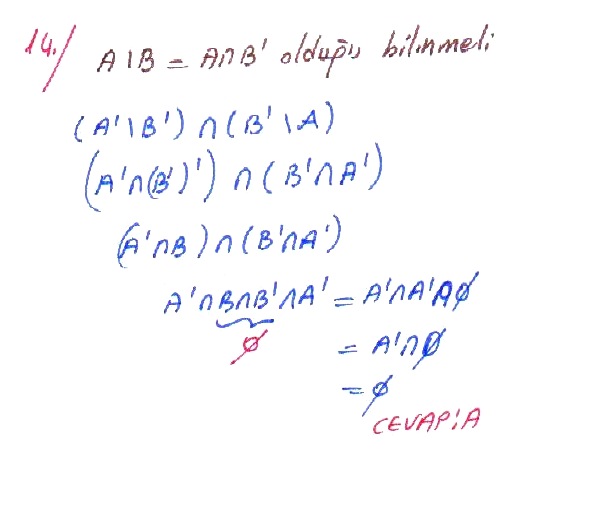 14./ A\B = A∩B' olduğu bilinmeli
(A'\B') ∩ (B'\A)
(A'∩(B')') ∩ (B'∩A')
(A'∩B) ∩ (B'∩A')
A'∩B∩B'∩A' = A'∩A'∩∅
∅ = A'∩∅
= ∅
CEVAP: A